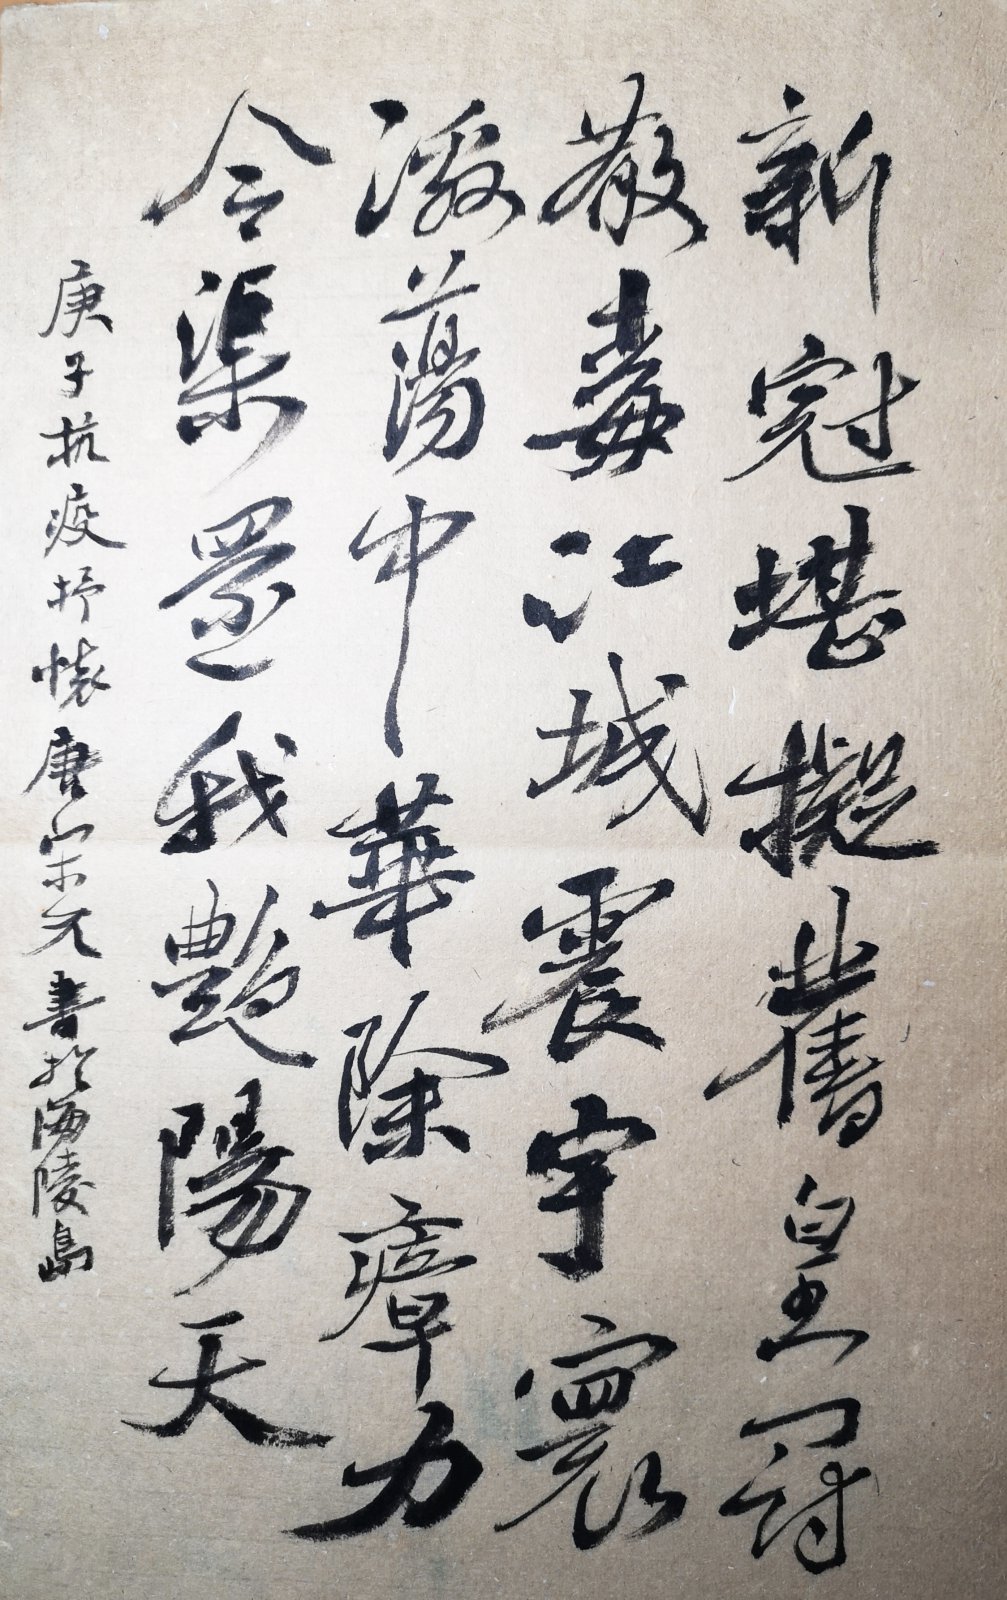 新冠堪擬舊皇冠
散毒江城震宇寰
激蕩中華除瘴力
令渠還我艷陽天
庚子抗疫抒懷唐宋元書於海陵島